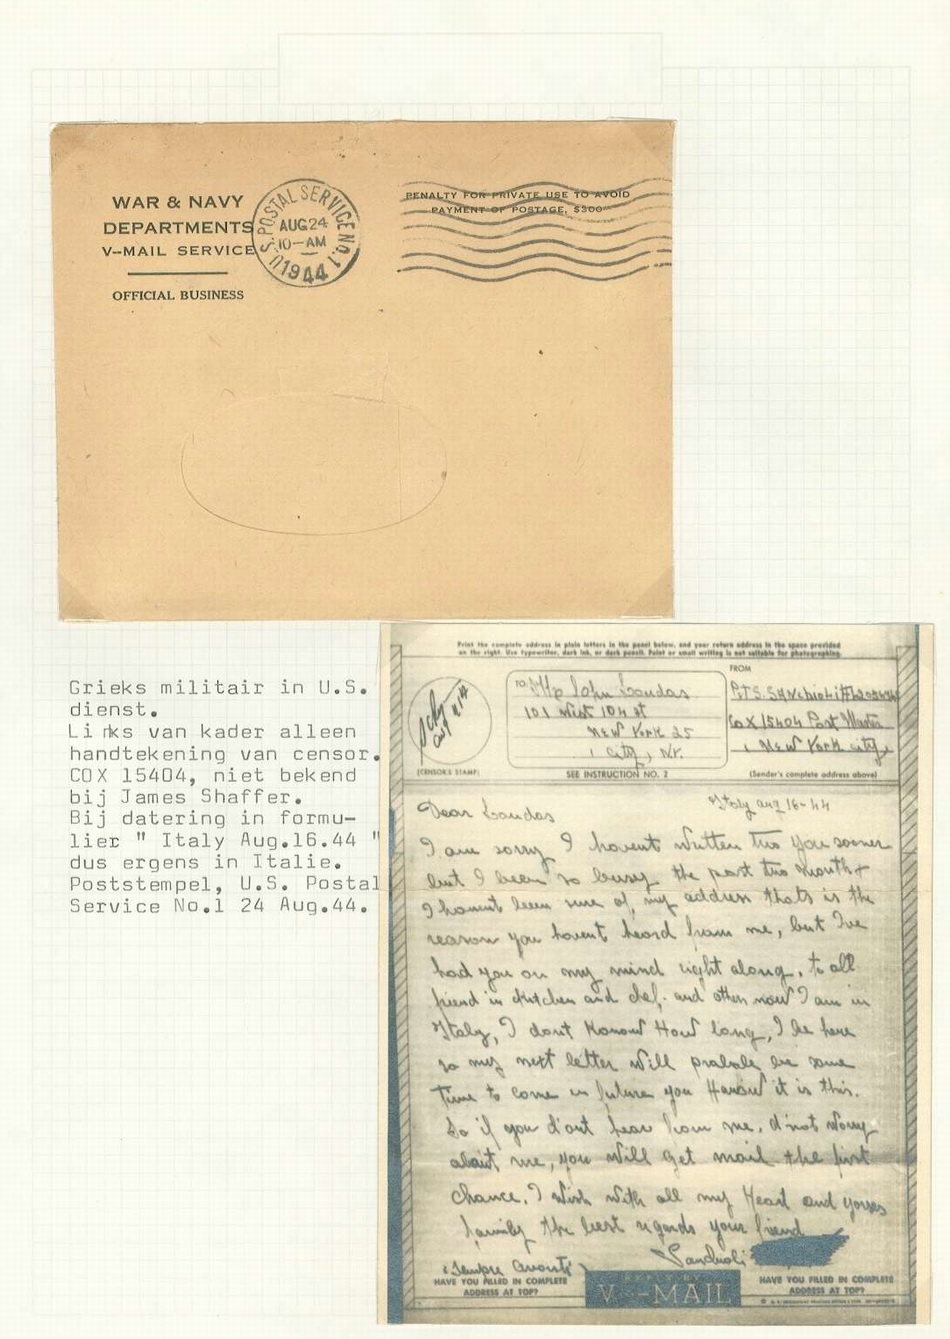 WAR & NAVY
DEPARTMENTS
V--MAIL SERVICE
OFFICIAL BUSINESS
U.S. POSTAL SERVICE NO. 1
AUG 24
10-AM
1944
PENALTY FOR PRIVATE USE TO AVOID
PAYMENT OF POSTAGE, $300
Grieks militair in U.S.
dienst.
Links van kader alleen
handtekening van censor.
COX 15404, niet bekend
bij James Shaffer.
Bij datering in formu-
lier " Italy Aug.16.44 "
dus ergens in Italie.
Poststempel, U.S. Postal
Service No.1 24 Aug.44.
Print the complete address in plain letters in the panel below, and your return address in the space provided
on the right. Use typewriter, dark ink, or dark pencil. Faint or small writing is not suitable for photographing.
(CENSOR'S STAMP)
TO John Loudas
101 West 104 st
New York 25
City, N.Y.
SEE INSTRUCTION NO. 2
FROM
Cox 15404 Post Master
New York City
(Sender's complete address above)
Italy aug 16-44
Dear Loudas
I am sorry I havent written two you sooner
but I been so busy the past two months
I havnt been sure of, my address thats is the
reason you havent heard from me, but I've
had you on my mind right along. to all
friend in kitchen and chef. and other now I am in
Italy, I dont Konow How long, I be here
so my next letter will probale be some
time to come in future you Konow it is this.
So if you d'ont hear from me. d'not worry
about me, you will get mail the first
chance. I wish with all my Heart and yours
family the best regards your friend
(Sempre Avanti)
HAVE YOU FILLED IN COMPLETE
ADDRESS AT TOP?
REPLY BY
V--MAIL
HAVE YOU FILLED IN COMPLETE
ADDRESS AT TOP?